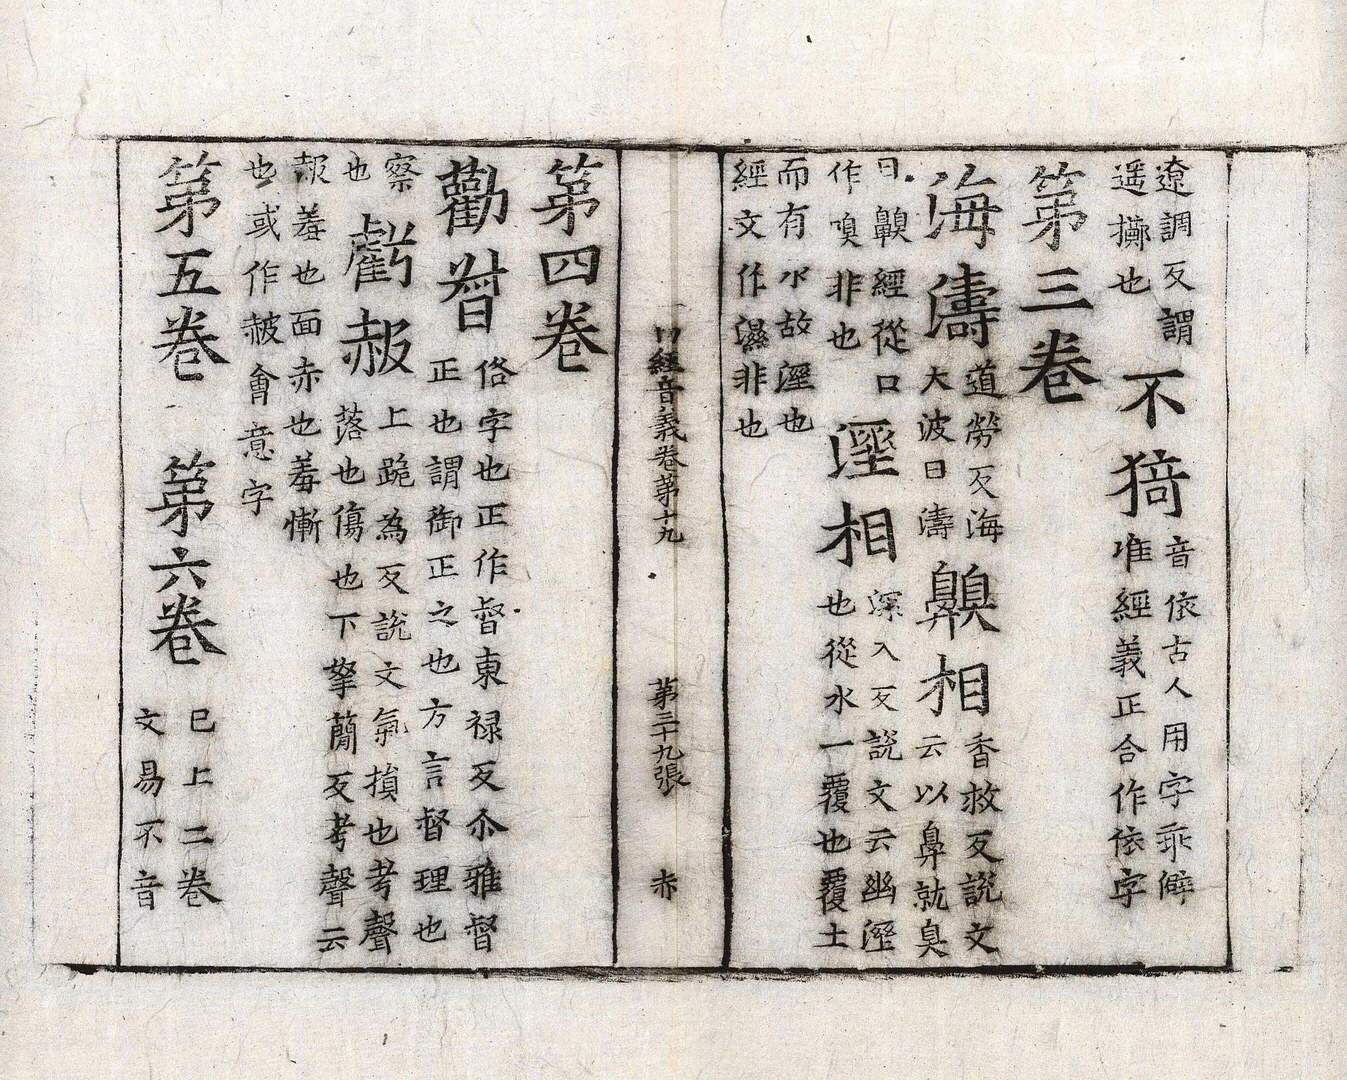 遼調反謂
遥擲也
不猗
音依古人用字乖僻
唯經義正合作依字
第三卷
海濤
道勞反海
大波曰濤
齅相
香救反説文
云以鼻就臭
曰齅經從口
作嗅非也
溼相
深入反説文云幽溼
也從水一覆也覆土
而有水故溼也
經文作濕非也
經音義卷第十九
第三十九張
赤
第四卷
勸
俗字也正作督東禄反尒雅督
正也謂御正之也方言督理也
察
也
虧赧
上跪為反説文氣損也考聲
落也傷也下拏蕳反考聲云
赧羞也面赤也羞慚
也或作赧會意字
第五卷
第六卷
已上二卷
文易不音